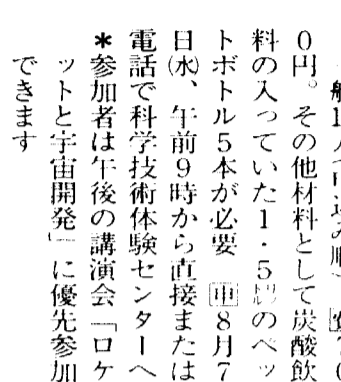 0円。その他材料として炭酸飲
料の入っていた1・5㍑のペッ
トボトル5本が必要 申8月7
日㈬、午前9時から直接または
電話で科学技術体験センターへ
*参加者は午後の講演会「ロケ
ットと宇宙開発」に優先参加
できます